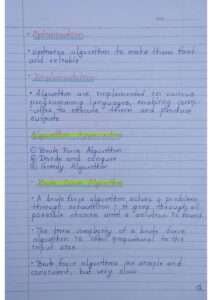 • Optimization
• Optimize algorithm to make them fast
and reliable
• Implementation
• Algorithm are implemented in various
programming languages, enabling comp-
uters to execute them and produce
outputs
Algorithm Approaches
1) Brute Force Algorithm
2) Divide and conquer
3) Greedy Algorithm
• Brute Force Algorithm
• A brute force algorithm solves a problem
through exhaustion: it goes through all
possible choices until a solution is found.
• The time complexity of a brute force
algorithm is often proportional to the
input size.
• Brute force algorithms are simple and
consistent, but very slow.